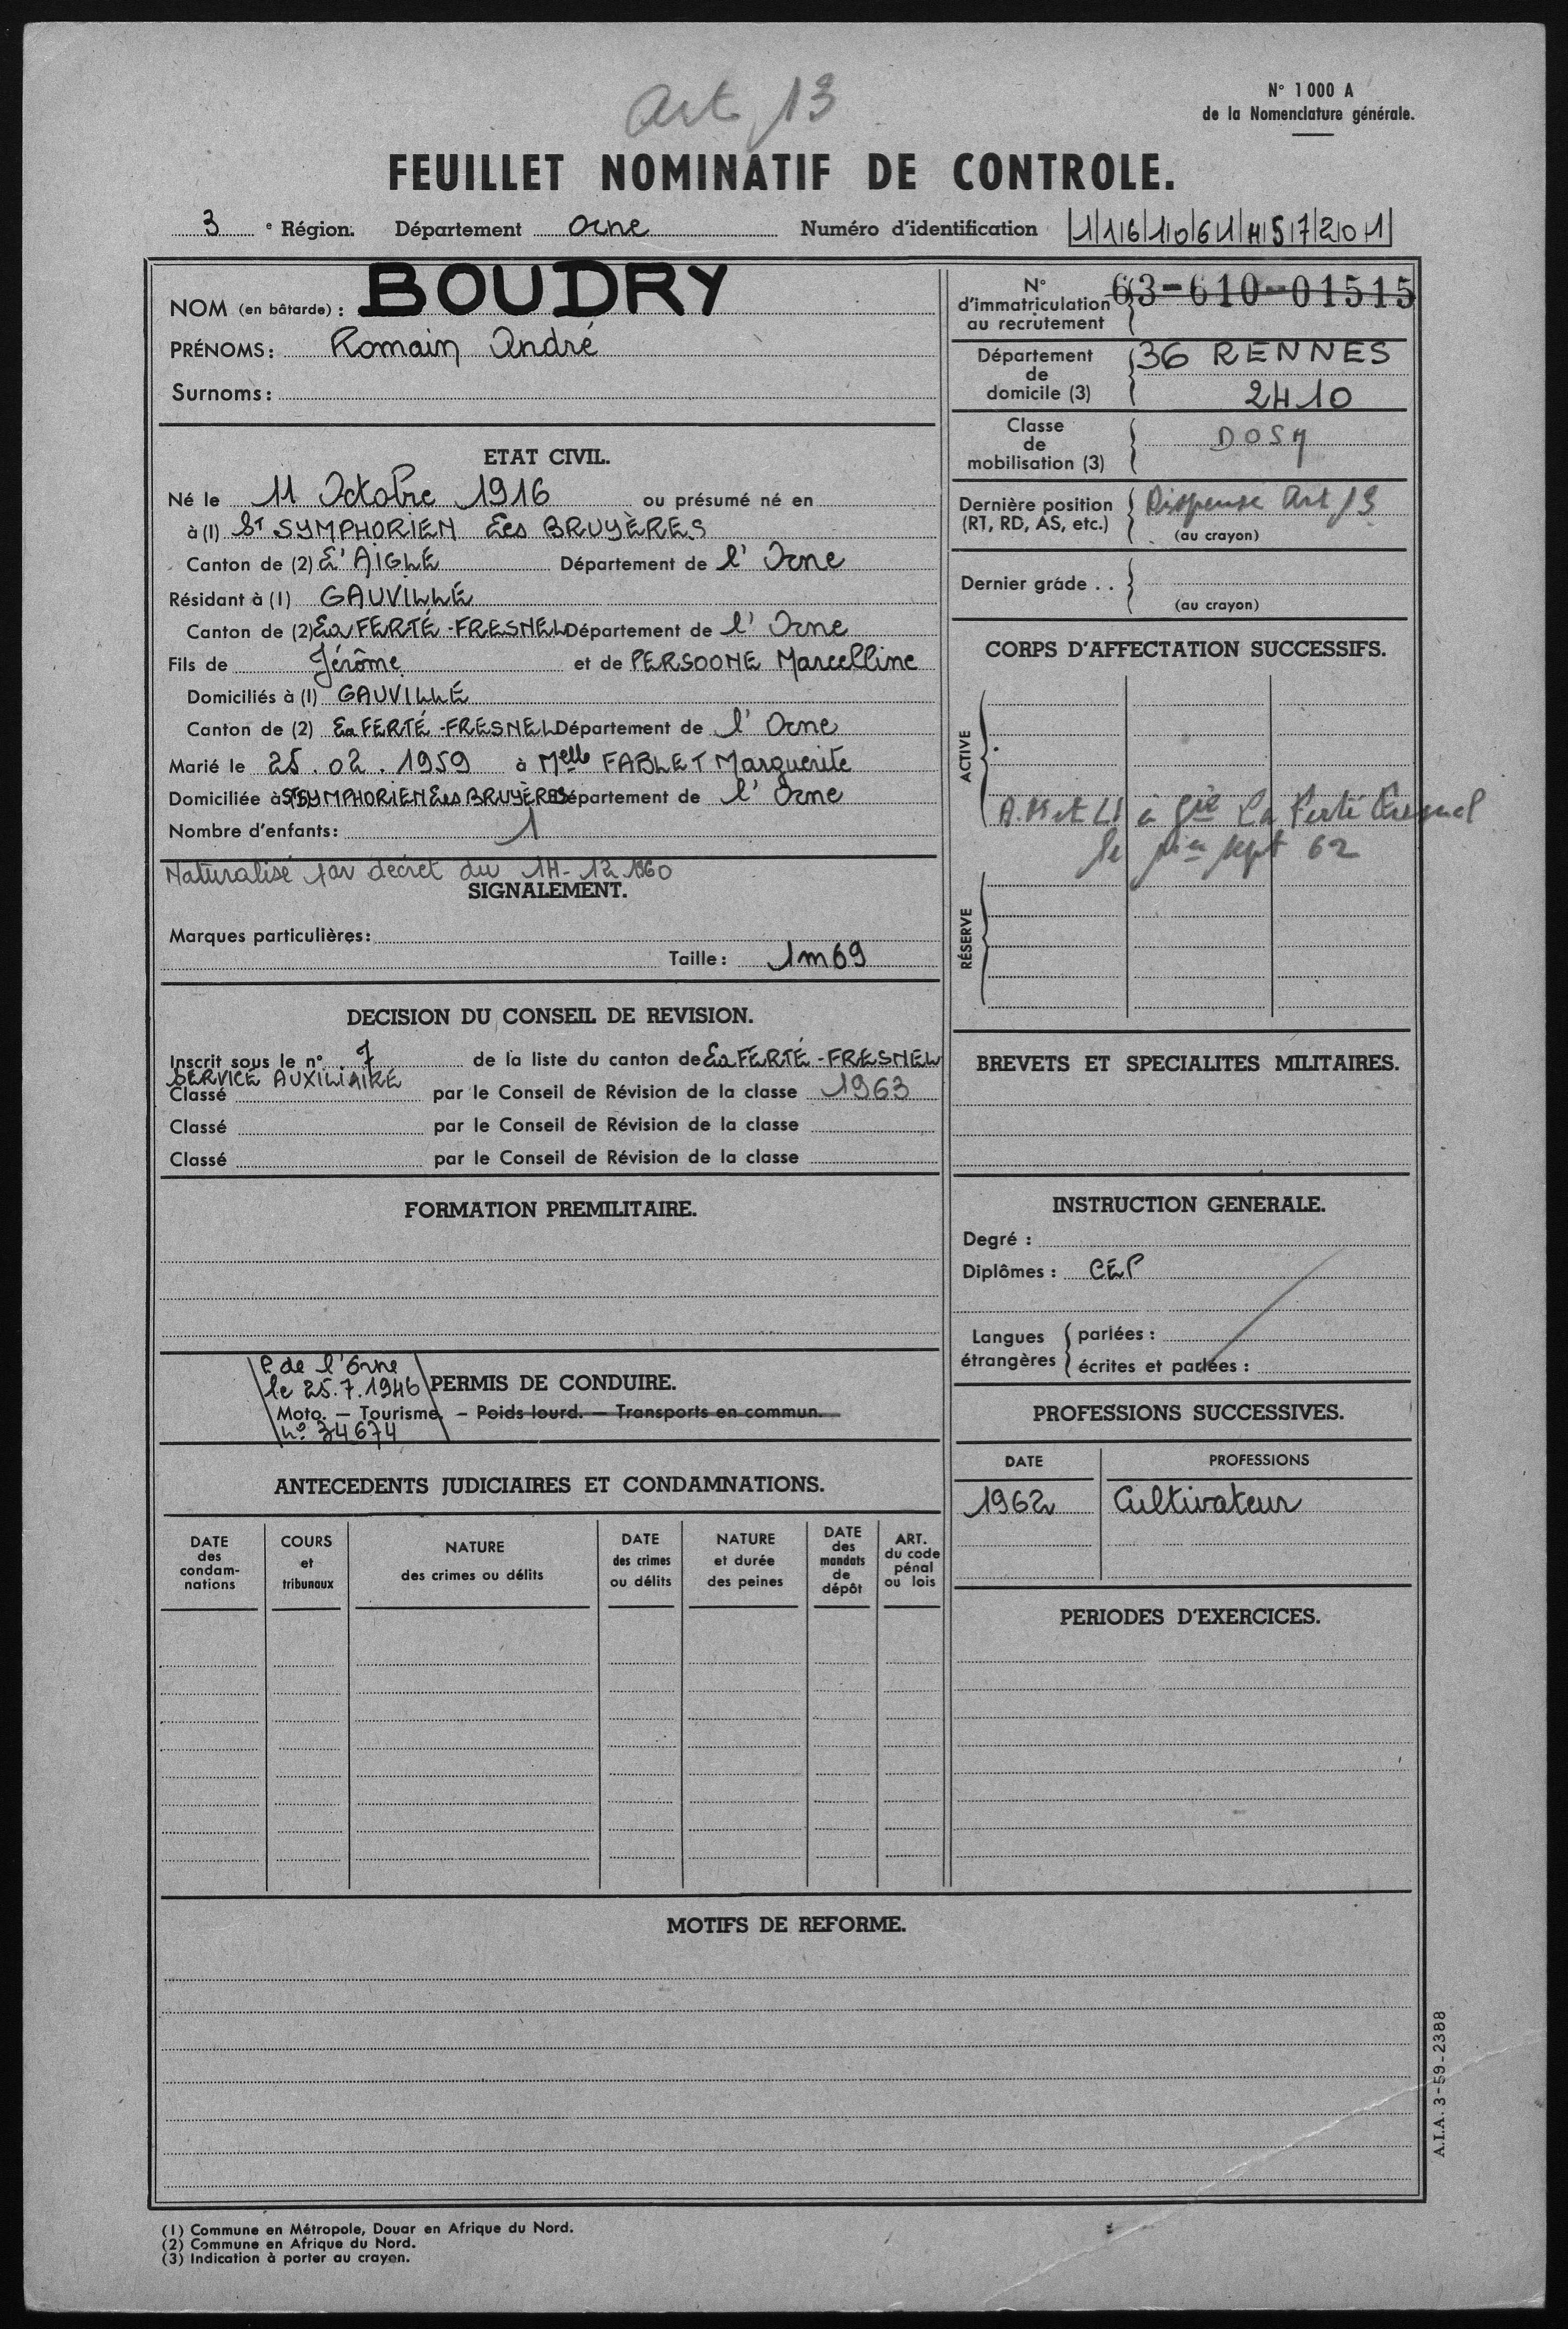 Art 13
N° 1000 A
de la Nomenclature générale.
FEUILLET NOMINATIF DE CONTROLE.
3 e Région. Département Orne Numéro d'identification |1|16|10|61|4|5|7|20|1|
NOM (en bâtarde) : BOUDRY
PRÉNOMS : Romain André
Surnoms :
N° d'immatriculation au recrutement 63-610-01515
Département de domicile (3) 36 RENNES
2410
Classe de mobilisation (3)
Dernière position (RT, RD, AS, etc.) Dispense Art 13
(au crayon)
Dernier grade . .
(au crayon)
ETAT CIVIL.
Né le 11 Octobre 1916 ou présumé né en
à (1) St SYMPHORIEN Les BRUYÈRES
Canton de (2) L'AIGLE Département de l'Orne
Résidant à (1) GAUVILLE
Canton de (2) La FERTÉ-FRESNEL Département de l'Orne
Fils de Jérôme et de PERSOONE Marcelline
Domiciliés à (1) GAUVILLE
Canton de (2) La FERTÉ-FRESNEL Département de l'Orne
Marié le 25.02.1959 à Melle FABLET Marguerite
Domiciliée à St SYMPHORIEN Les BRUYÈRES Département de l'Orne
Nombre d'enfants : 1
Naturalisé par décret du 14-12.1960
SIGNALEMENT.
Marques particulières :
Taille : 1m69
DECISION DU CONSEIL DE REVISION.
Inscrit sous le n° 7 de la liste du canton de La FERTÉ-FRESNEL
SERVICE AUXILIAIRE
Classé par le Conseil de Révision de la classe 1963
Classé par le Conseil de Révision de la classe
Classé par le Conseil de Révision de la classe
FORMATION PREMILITAIRE.
P. de l'Orne
le 25.7.1946 PERMIS DE CONDUIRE.
Moto. — Tourisme. — Poids lourd. — Transports en commun.
n° 34674
CORPS D'AFFECTATION SUCCESSIFS.
ACTIVE
à Gie La Ferté Fresnel
le sept 62
RÉSERVE
BREVETS ET SPECIALITES MILITAIRES.
INSTRUCTION GENERALE.
Degré :
Diplômes : CEP
Langues étrangères
parlées :
écrites et parlées :
PROFESSIONS SUCCESSIVES.
DATE PROFESSIONS
1962 Cultivateur
PERIODES D'EXERCICES.
ANTECEDENTS JUDICIAIRES ET CONDAMNATIONS.
DATE des condam-nations
COURS et tribunaux
NATURE des crimes ou délits
DATE des crimes ou délits
NATURE et durée des peines
DATE des mandats de dépôt
ART. du code pénal ou lois
MOTIFS DE REFORME.
A.I.A. 3-59-2388
(1) Commune en Métropole, Douar en Afrique du Nord.
(2) Commune en Afrique du Nord.
(3) Indication à porter au crayon.